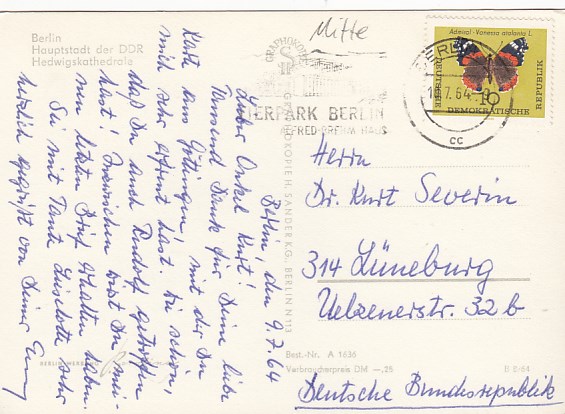 Berlin
Hauptstadt der DDR
Hedwigskathedrale
Mitte
Admiral - Vanessa atalanta L.
DEUTSCHE
DEMOKRATISCHE
REPUBLIK
10
TIERPARK BERLIN
ALFRED-BREHM HAUS
cc
GRAPHOKOPIE
GRAPHOKOPIE H. SANDER K.G., BERLIN N 113
Berlin, den 9.7.64
Lieber Onkel Kurt!
Tausend Dank für Deine liebe
Karte aus Göttingen, mit der Du
mich sehr erfreut hast. Wie schön,
daß Du auch Rudolf getroffen
hast! Inzwischen wirst Du
meinen letzten Brief erhalten haben.
Sei mit Tante Liselotte sehr
herzlich gegrüßt von Deiner
Herrn
Dr. Kurt Severin
314 Lüneburg
Uelzenerstr. 32 b
Deutsche Bundesrepublik
Best.-Nr. A 1636
Verbraucherpreis DM —,25